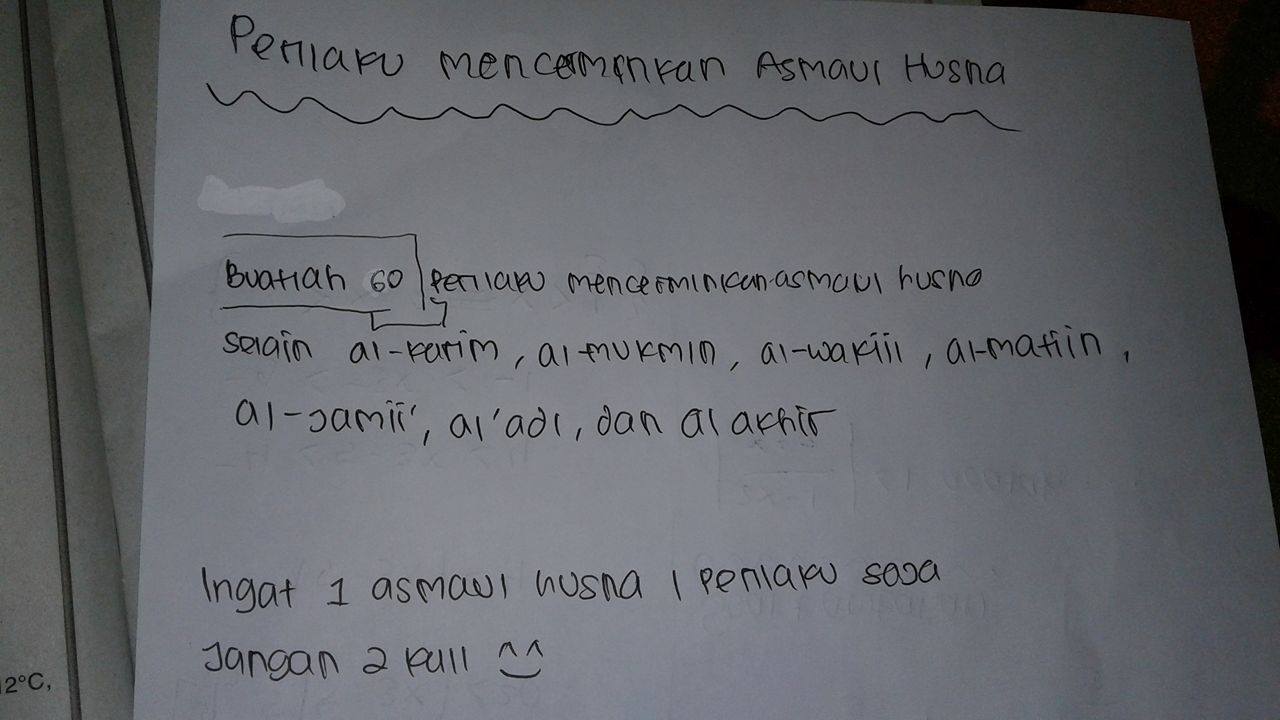 Perilaku mencerminkan Asmaul Husna
Buatlah 60 perilaku mencerminkan asmaul husna
selain al-karim, al-mukmin, al-wakiil, al-matiin,
al-Jamii', al'adl, dan al akhir
Ingat 1 asmaul husna 1 perilaku saja
Jangan 2 kali ^^
2°C,